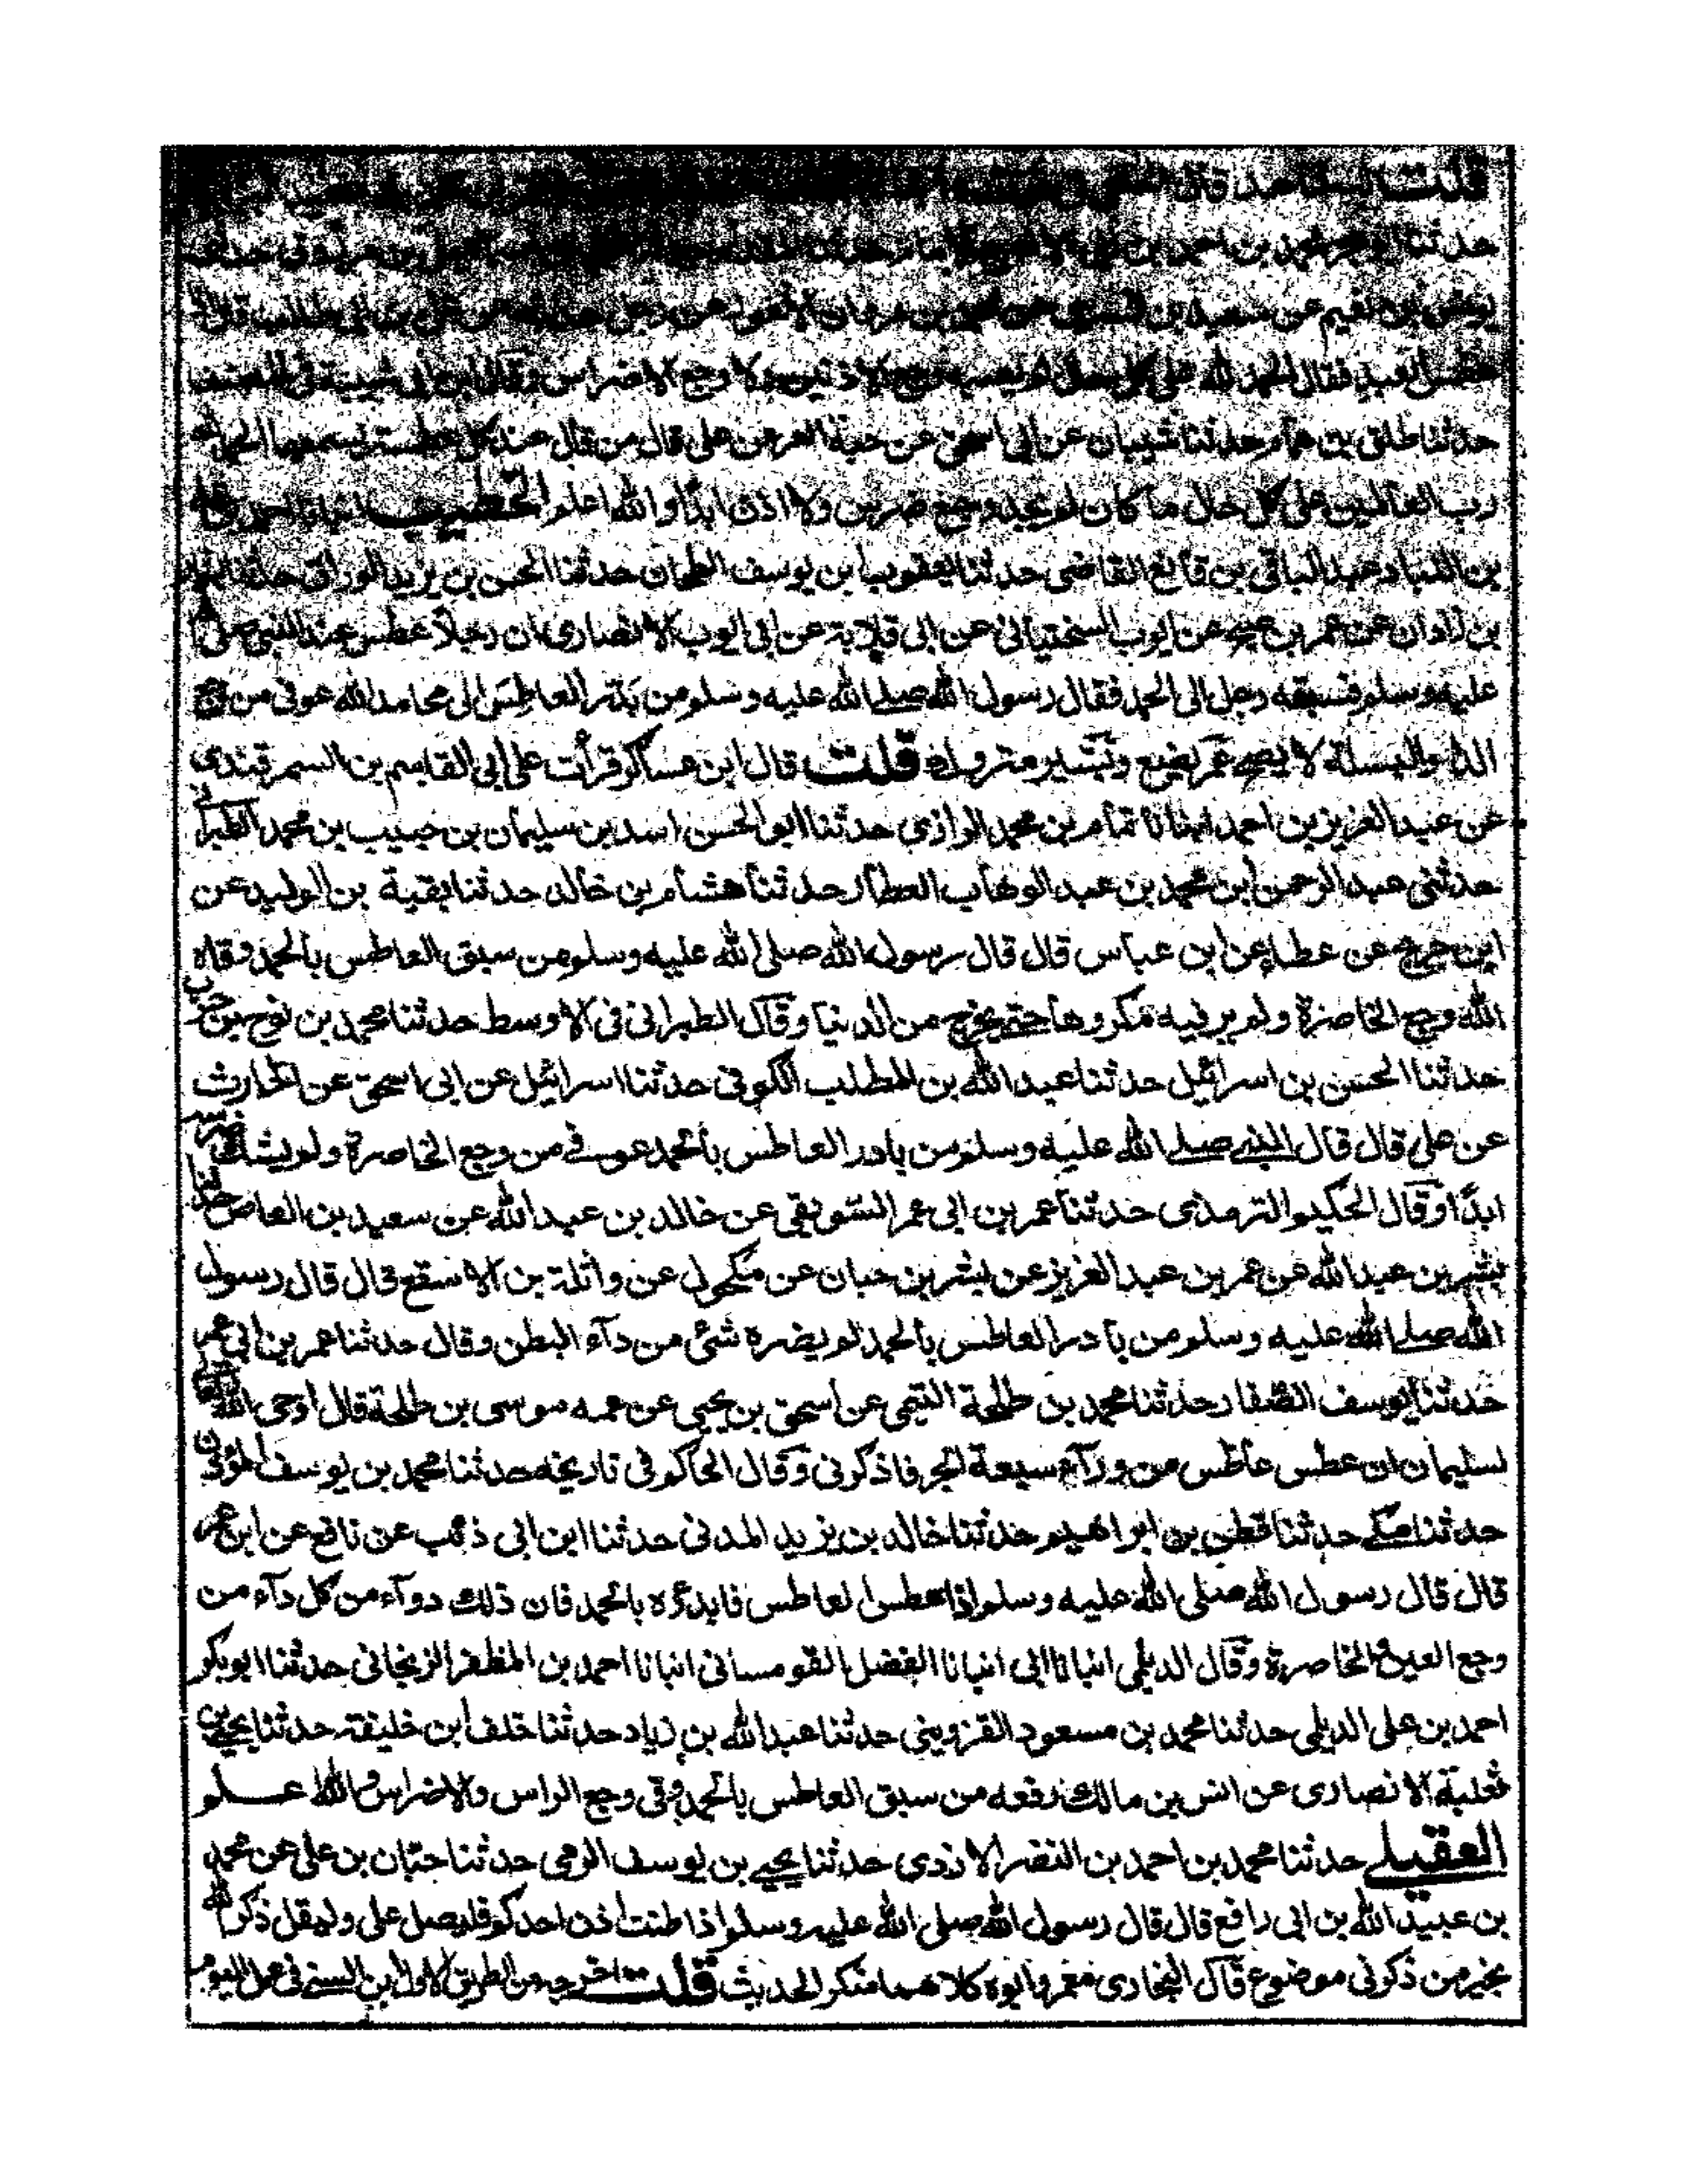 قلت
حدثنا محمد بن احمد بن
نعيم عن سعيد بن عن محمد بن مروان عن رجل عن علي بن ابي طالب قال
عطس العبد فقال الحمد لله على كل حال لم يصبه وجع الاذنين ولا وجع الاضراس وقال ابن ابي شيبة في المصنف
حدثنا طلق بن حدثنا شيبان عن ابي اسحق عن حبة العرني عن علي قال من قال عند كل عطسة يسمعها الحمد لله
رب العالمين على كل حال ما كان لم يجد وجع ضرس ولا اذن ابدًا والله اعلم الخطيب انبانا احمد بن
بن عبد الباقي بن قانع القاضي حدثنا يعقوب بن يوسف الطحان حدثنا الحسن بن يزيد الوراق حدثنا
بن زاذان عن عمر بن صبح عن ايوب السختياني عن ابي قلابة عن ابي ايوب الانصاري ان رجلاً عطس عند النبي صلى الله
عليه وسلم فسبقه رجل الى الحمد فقال رسول الله صلى الله عليه وسلم من بدر العاطس الى محامد الله عوفي من وجع
الداء والبسلة لا يصح عمر يضع متروك قلت قال ابن عساكر قرأت على ابي القاسم بن السمرقندي
عن عبد العزيز بن احمد انبانا تمام بن محمد الرازي حدثنا ابو الحسن اسد بن سليمان بن حبيب بن محمد الطبراني
حدثني عبد الرحمن ابن محمد بن عبد الوهاب العطار حدثنا هشام بن خالد حدثنا بقية بن الوليد عن
ابن جريج عن عطاء عن ابن عباس قال قال رسول الله صلى الله عليه وسلم من سبق العاطس بالحمد وقاه
الله وجع الخاصرة ولم ير فيه مكروها حتى يخرج من الدنيا وقال الطبراني في الاوسط حدثنا محمد بن نوح بن حرب
حدثنا الحسن بن اسرائيل حدثنا عبد الله بن المطلب الكوفي حدثنا اسرائيل عن ابي اسحق عن الحارث
عن علي قال قال النبي صلى الله عليه وسلم من بادر العاطس بالحمد عوفي من وجع الخاصرة ولم يشتك ضرسه
ابدًا وقال الحكيم الترمذي حدثنا عمر بن ابي عمر السويقي عن خالد بن عبد الله عن سعيد بن العاص حدثنا
بشير بن عبد الله عن عمر بن عبد العزيز عن بشر بن حبان عن مكحول عن واثلة بن الاسقع قال قال رسول
الله صلى الله عليه وسلم من بادر العاطس بالحمد لم يضره شئ من داء البطن وقال حدثنا عمر بن ابي عمر
حدثنا يوسف الصفار حدثنا محمد بن طلحة التيمي عن اسحق بن يحيى عن عمه موسى بن طلحة قال اوحى الله
لسليمان ان عطس عاطس من وراء سبعة ابحر فاذكرني وقال الحاكم في تاريخه حدثنا محمد بن يوسف المؤذن
حدثنا مكي حدثنا قطن بن ابراهيم حدثنا خالد بن يزيد المدني حدثنا ابن ابي ذئب عن نافع عن ابن عمر
قال قال رسول الله صلى الله عليه وسلم اذا عطس العاطس فابدؤه بالحمد فان ذلك دواء من كل داء من
وجع العين والخاصرة وقال الديلمي انبانا ابي انبانا الفضل القومساني انبانا احمد بن المظفر الزنجاني حدثنا ابو بكر
احمد بن علي الديلمي حدثنا محمد بن مسعود القزويني حدثنا عبد الله بن زياد حدثنا خلف ابن خليفة حدثنا يحيى بن
ثعلبة الانصاري عن انس بن مالك رفعه من سبق العاطس بالحمد وقي وجع الراس والاضراس والله اعلم
العقيلي حدثنا محمد بن احمد بن النضر الازدي حدثنا يحيى بن يوسف الزمي حدثنا حبان بن علي عن محمد
بن عبيد الله بن ابي رافع قال قال رسول الله صلى الله عليه وسلم اذا طنت اذن احدكم فليصل علي وليقل ذكر الله
بخير من ذكرني موضوع قال البخاري معمر وابوه كلاهما منكر الحديث قلت اخرجه من الطريق الاول ابن السني في عمل اليوم